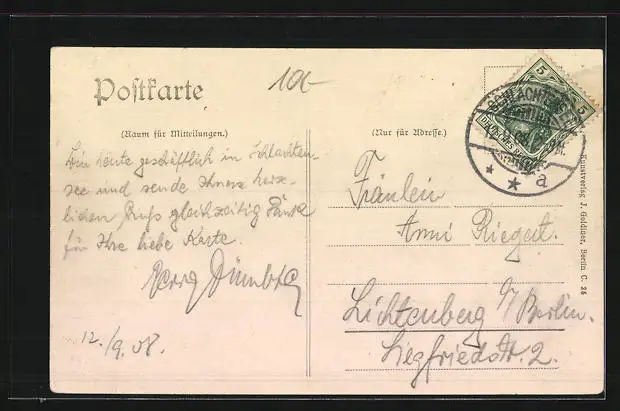 Postkarte
10.-
(Raum für Mitteilungen.)
Bin heute geschäftlich in Schlachten-
see und sende Ihnen herz-
lichen Gruß gleichzeitig Danke
für Ihre liebe Karte.
Georg
12./9.08.
(Nur für Adresse.)
Fräulein
Anni Riegert.
Lichtenberg b/Berlin.
Siegfriedstr. 2.
5
5
SCHLACHTENSEE
a
Kunstverlag J. Goldiner, Berlin C. 25